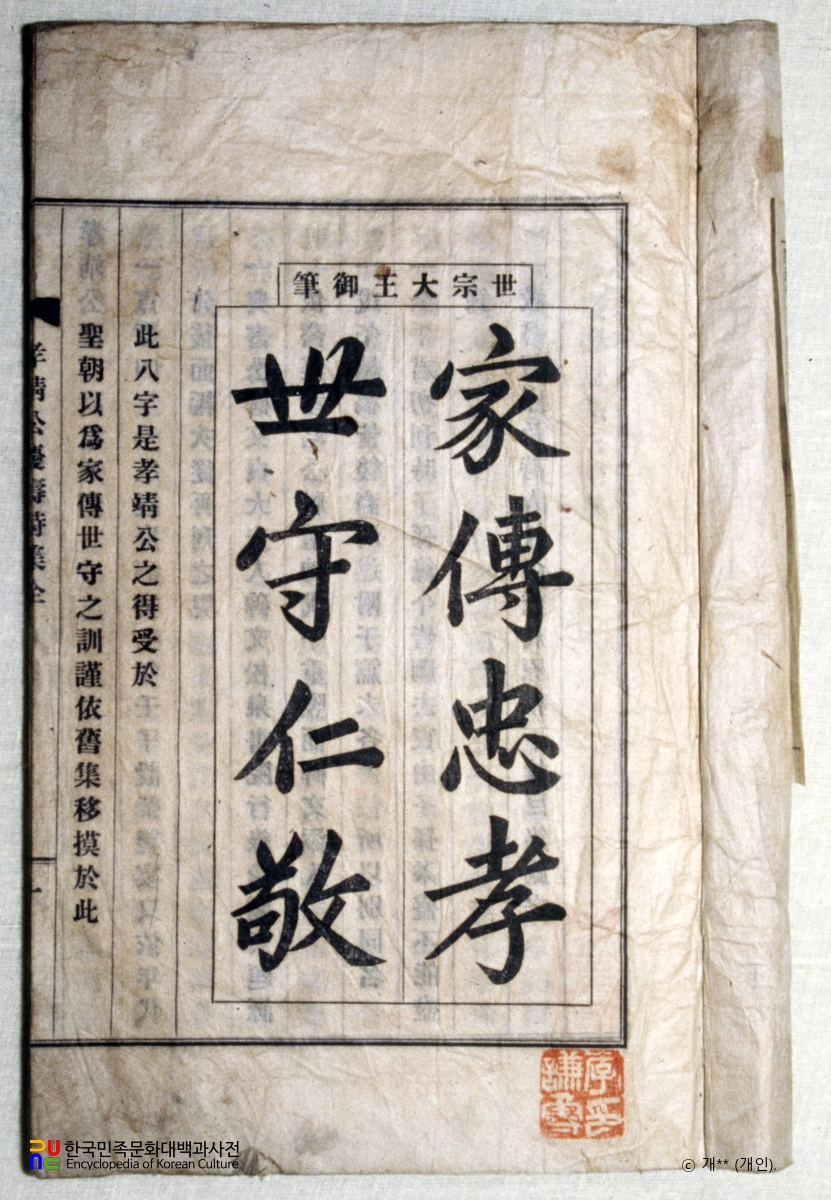 世宗大王御筆
家傳忠孝
世守仁敬
此八字是孝靖公之得受於
聖朝以爲家傳世守之訓謹依舊集移摸於此
한국민족문화대백과사전
Encyclopedia of Korean Culture
ⓒ 개** (개인).